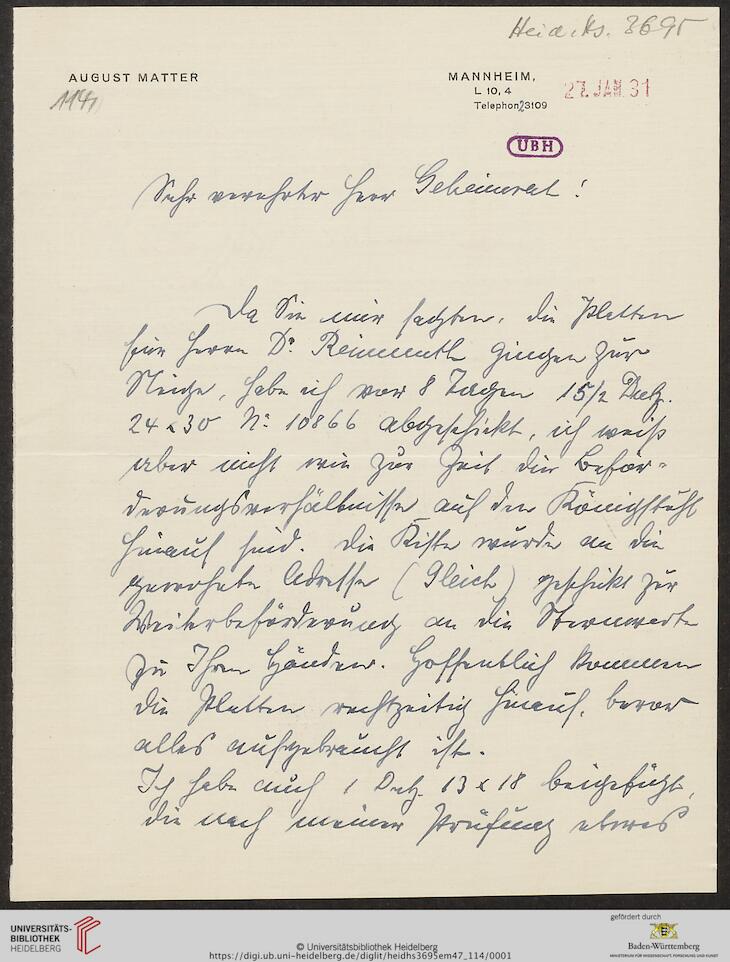 Heid. Hs. 3695
AUGUST MATTER
114,1
MANNHEIM,
L 10, 4
Telephon 23109
27. JAN. 31
UBH
Sehr verehrter Herr Geheimrat!
Da Sie mir sagten, die Platten
für Herrn Dr. Reinmuth gingen zur
Neige, habe ich vor 8 Tagen 15/2 Dutz.
24 x 30 No 10866 abgeschickt, ich weiß
aber nicht wie zur Zeit die Beför-
derungsverhältnisse auf den Königstuhl
hinauf sind. Die Kiste wurde an die
gewohnte Adresse (Gleich) geschickt zur
Weiterbeförderung an die Sternwarte
zu Ihren Händen. Hoffentlich kommen
die Platten rechtzeitig hinauf, bevor
alles aufgebraucht ist.
Ich habe auch 1 Dutz. 13 x 18 beigefügt,
die nach meiner Prüfung etwas
UNIVERSITÄTS-
BIBLIOTHEK
HEIDELBERG
© Universitätsbibliothek Heidelberg
https://digi.ub.uni-heidelberg.de/diglit/heidhs3695em47_114/0001
gefördert durch
Baden-Württemberg
MINISTERIUM FÜR WISSENSCHAFT, FORSCHUNG UND KUNST